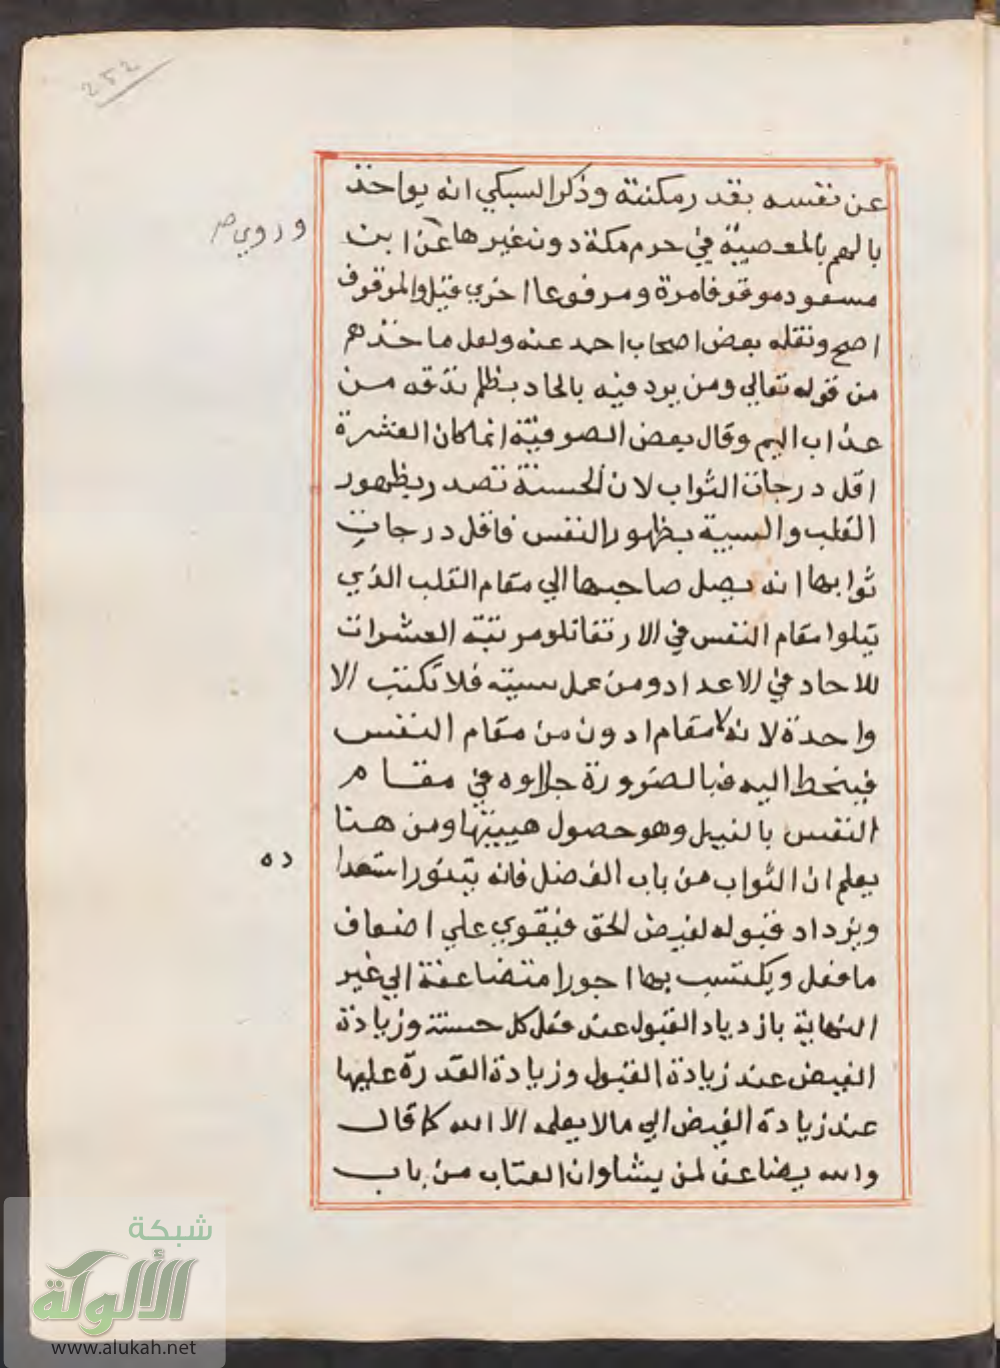 252
عن نفسه بقدر مكنته وذكر السبكي انه يواخذ
وروي صح
بالهم بالمعصية في حرم مكة دون غيرها عن ابن
مسعود موقوفا مرة ومرفوعا اخري قيل والموقوف
اصح ونقله بعض اصحاب احمد عنه ولعل ماخذهم
من قوله تعالي ومن يرد فيه بالحاد بظلم نذقه من
عذاب اليم وقال بعض الصوفية انما كان العشرة
اقل درجات الثواب لان الحسنة تصدر بظهور
القلب والسيية بظهور النفس فاقل درجات
ثوابها انه يصل صاحبها الي مقام القلب الذي
يتلوا مقام النفس في الارتقا تلو مرتبة العشرات
للاحاد في الاعداد ومن عمل سيية فلا تكتب الا
واحدة لانه لا مقام ادون من مقام النفس
فينحط اليه فبالضرورة جزاوه في مقام
النفس بالنيل وهو حصول هييتها ومن هنا
يعلم ان الثواب من باب الفضل فانه يتنور استعدا
ده
ويزداد قبوله لفيض الحق فيقوي علي اضعاف
ما فعل ويكتسب بها اجورا متضاعفة الي غير
النهاية بازدياد القبول عند فعل كل حسنة وزيادة
الفيض عند زيادة القبول وزيادة القدرة عليها
عند زيادة الفيض الي ما لا يعلمه الا الله كما قال
والله يضاعف لمن يشا وان العقاب من باب
شبكة
الألوكة
www.alukah.net